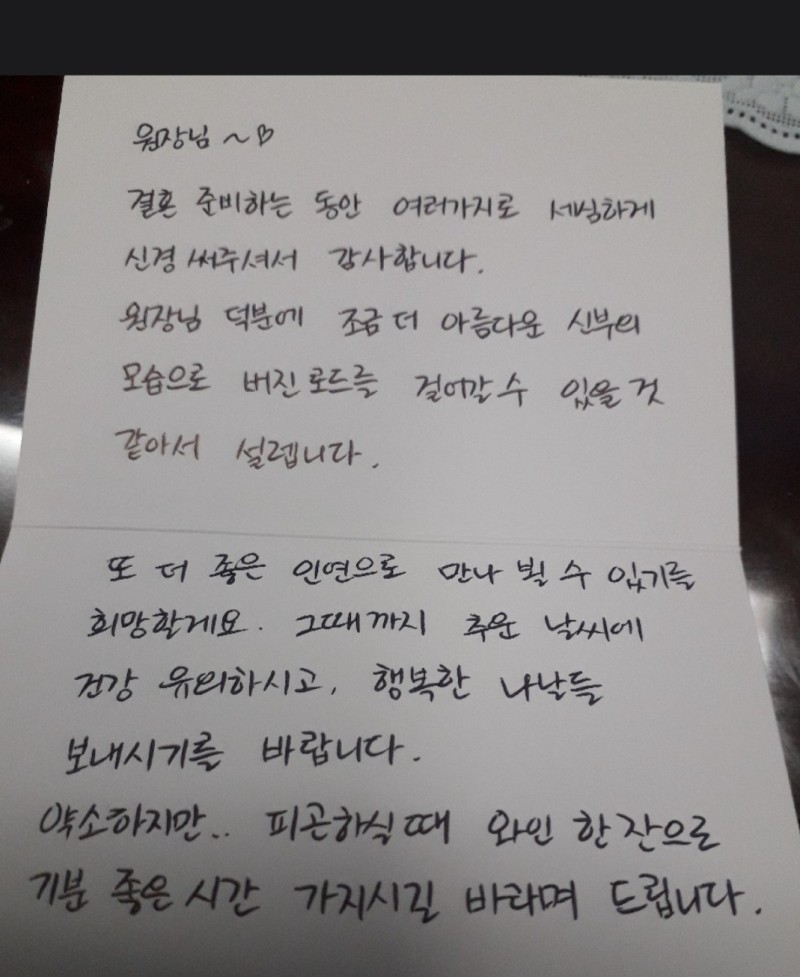 원장님 ~♡
결혼 준비하는 동안 여러가지로 세심하게
신경 써주셔서 감사합니다.
원장님 덕분에 조금 더 아름다운 신부의
모습으로 버진로드를 걸어갈 수 있을 것
같아서 설렙니다.
또 더 좋은 인연으로 만나 뵐 수 있기를
희망할게요. 그때까지 추운 날씨에
건강 유의하시고, 행복한 나날들
보내시기를 바랍니다.
약소하지만.. 피곤하실 때 와인 한 잔으로
기분 좋은 시간 가지시길 바라며 드립니다.